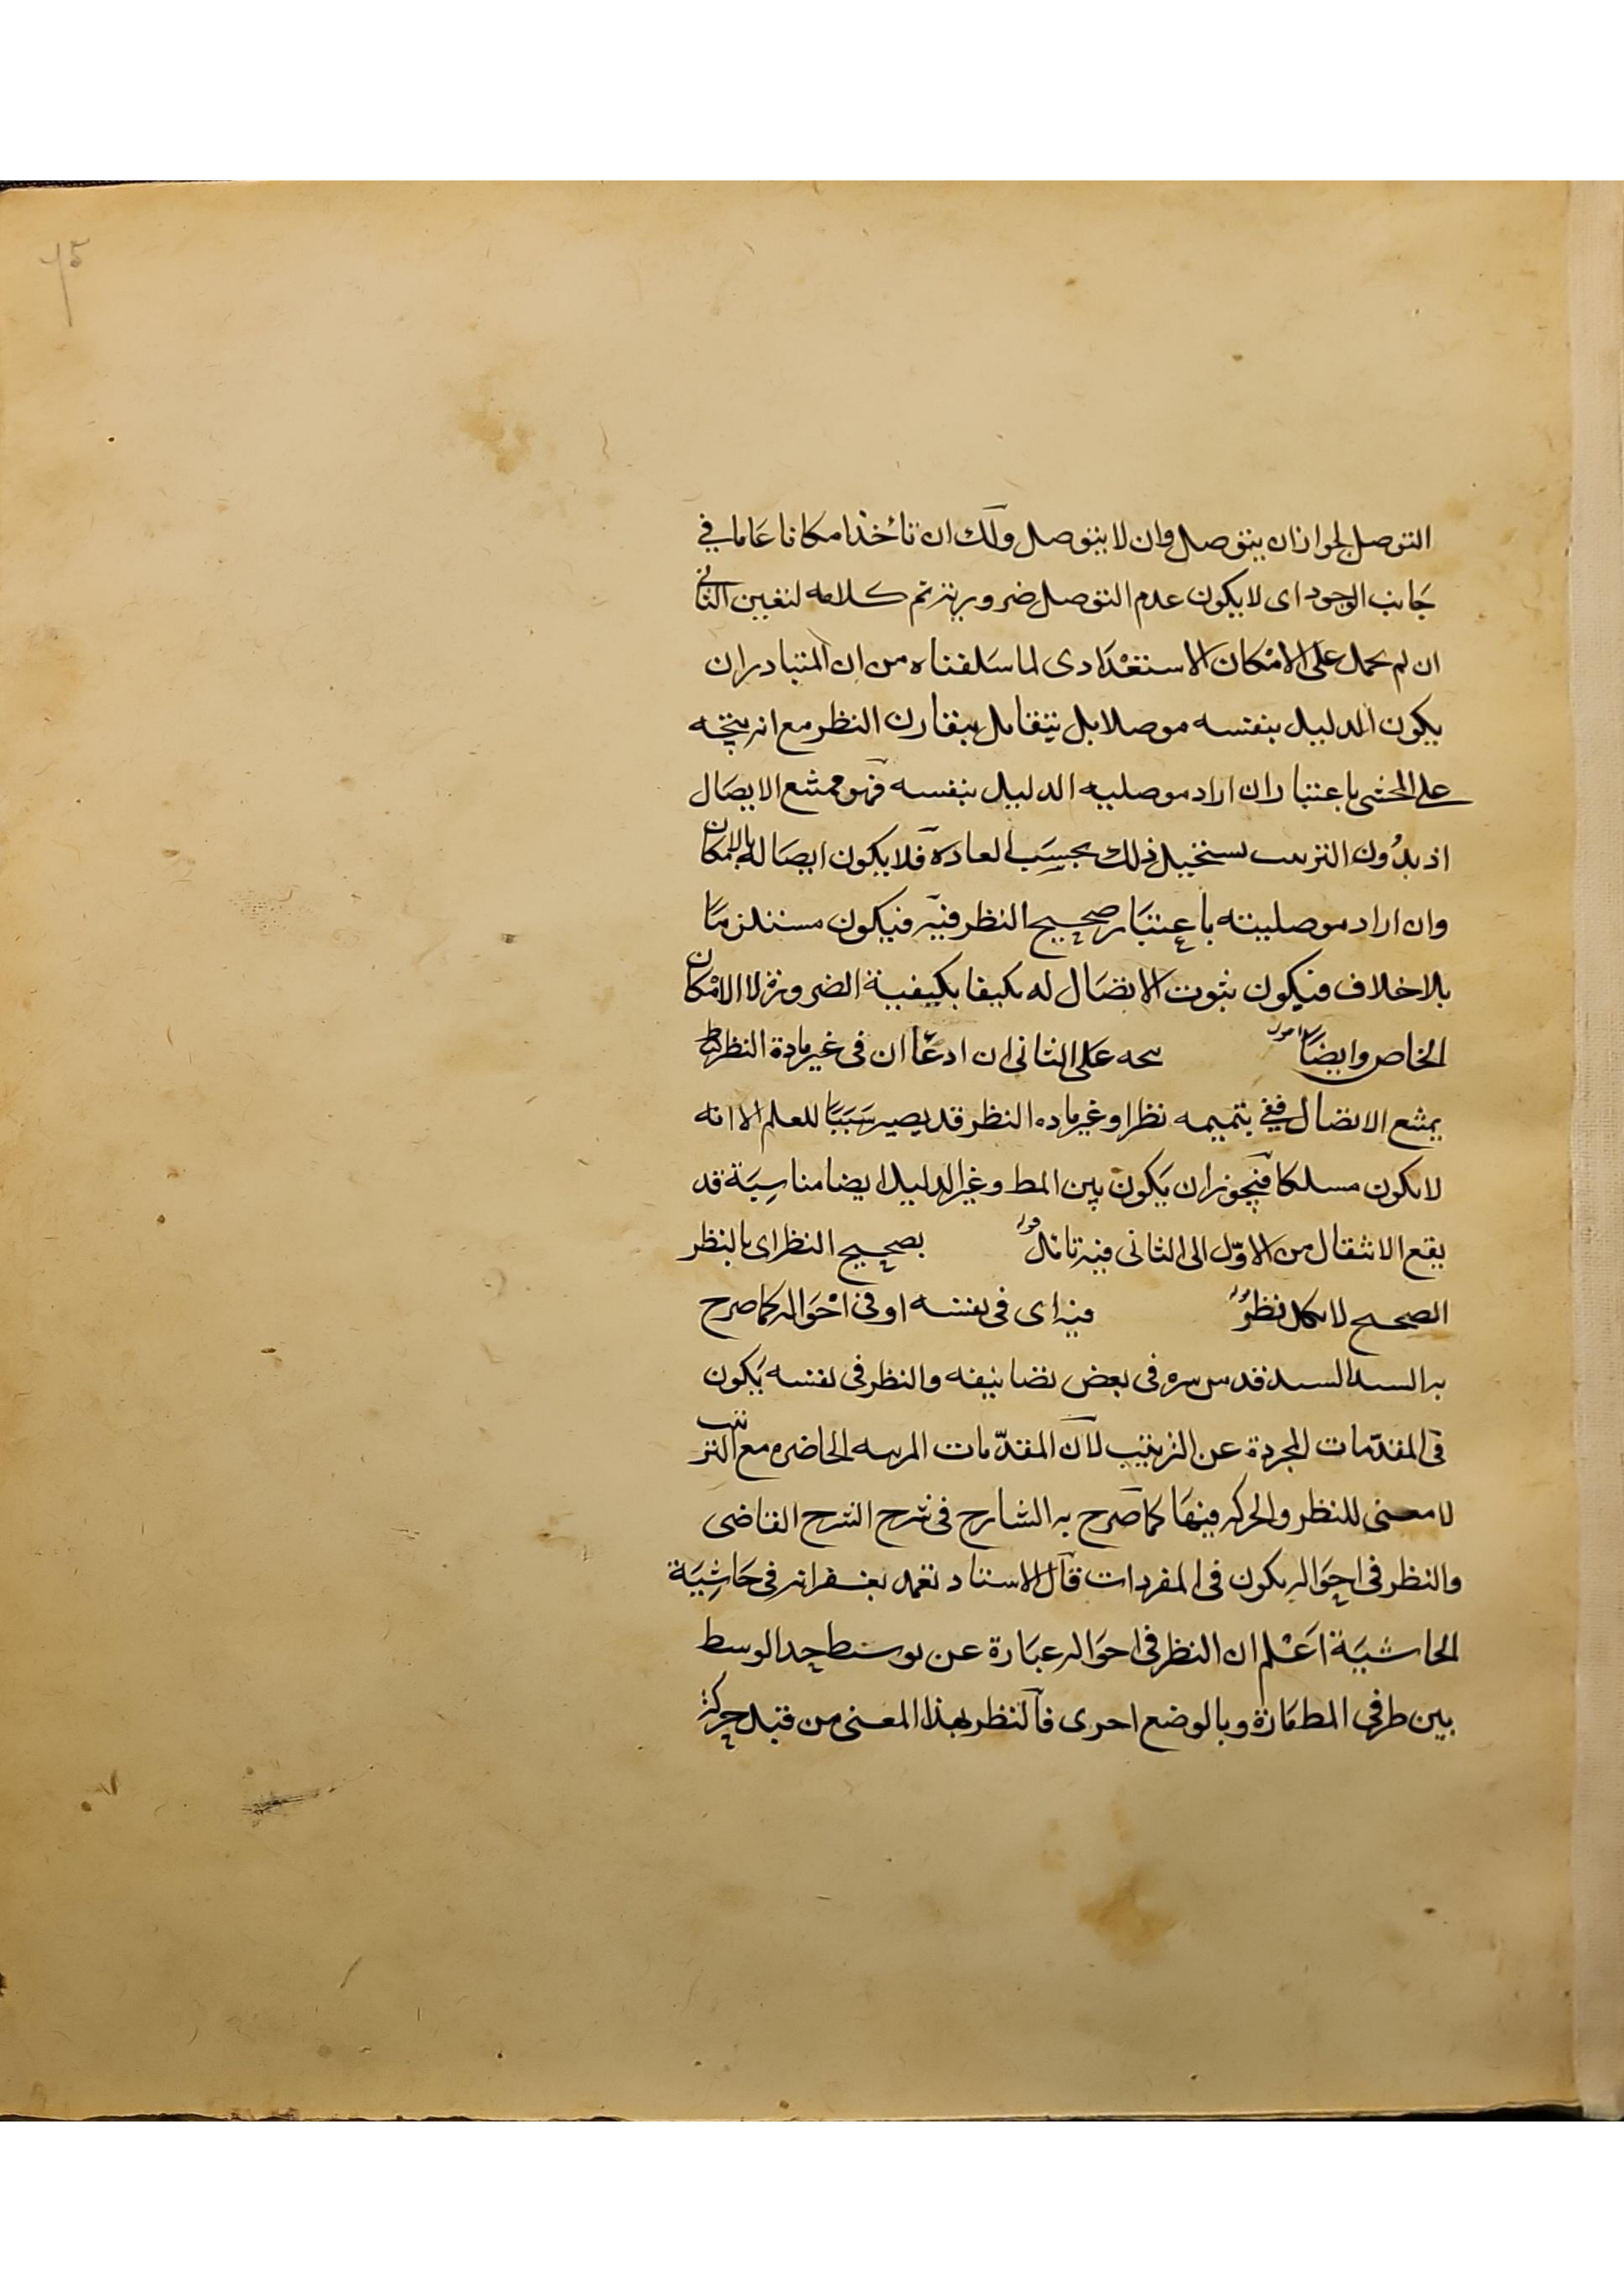 ٦٥
التوصل لجواز ان يتوصل وان لا يتوصل ولك ان تأخذ امكانا عاما في
جانب الوجود اى لا يكون عدم التوصل ضروريا ثم كلامه لتعين الثانى
ان لم يحمل على الامكان الاستعدادى لما سلفناه من ان المتبادر ان
يكون الدليل بنفسه موصلا بل يتقابل بتقارن النظر مع انه يتجه
على المحشى باعتبار ان اراد موصليه الدليل بنفسه فهو ممتنع الايصال
اذ بدون الترتيب يستحيل ذلك بحسب العادة فلا يكون ايصاله بالامكان
وان اراد موصليته باعتبار صحيح النظر فيه فيكون مستلزما
بلا خلاف فيكون ثبوت الاتصال له مكيفا بكيفية الضرورة لا الامكان
الخاص وايضا يتجه على الثانى ان ادعا ان فى غير مادة النظر
يمتنع الاتصال ففي تتميمه نظر او غير ماده النظر قد يصير سببا للعلم الا انه
لا يكون مسلكا فيجوز ان يكون بين المط وغير الدليل ايضا مناسبة قد
يقع الانتقال من الاول الى الثانى فيه تامل قوله بصحيح النظر اى بالنظر
الصحيح لا بكل نظر قوله فيه اى فى نفسه او فى احواله كما صرح
به السيد السند قدس سره فى بعض تصانيفه والنظر فى نفسه يكون
فى المقدمات المجردة عن الترتيب لان المقدمات المرتبه الحاضره مع الترتيب
لا معنى للنظر والحركه فيها كما صرح به الشارح فى شرح الشرح القاضى
والنظر فى احواله يكون فى المفردات قال الاستاد تغمد بغفرانه فى حاشية
الحاشية اعلم ان النظر فى احواله عبارة عن توسط حد الوسط
بين طرفى المط مارة وبالوضع احرى فالنظر بهذا المعنى من قبل حركة